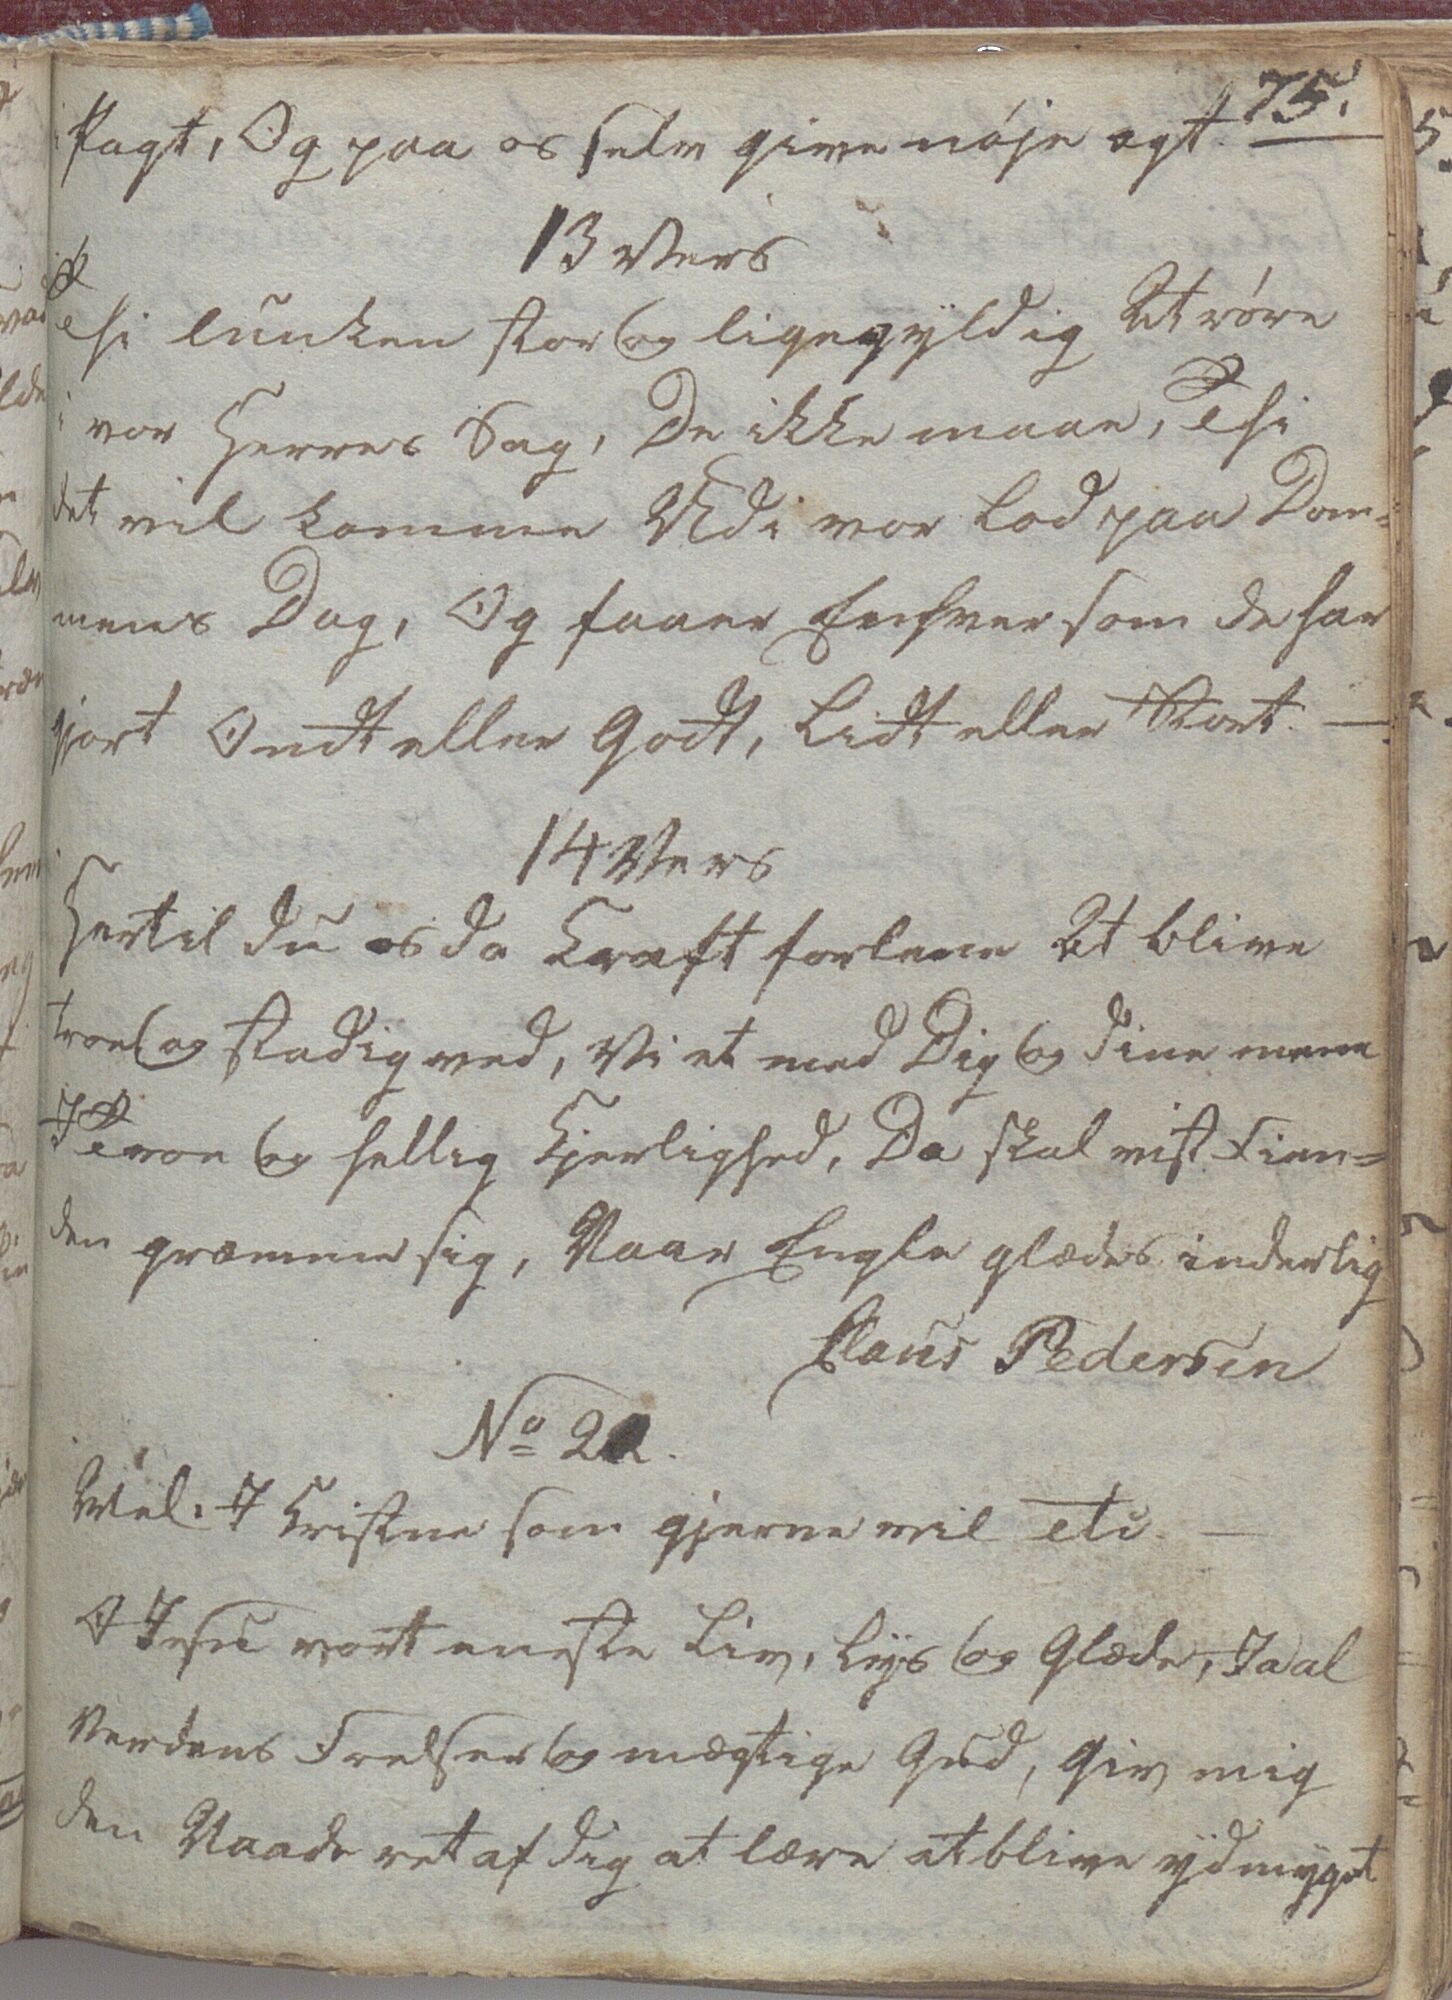 75.
Pagt, Og paa os selv give nøje agt.
13 Vers
Thi lunken stor og ligegyldig At røre
i vor Herres Sag, De ikke maae, Thi
det vil komme Udi vor Lod paa Dom=
mens Dag, Og faaer Enhver som de har
gjort Ondt eller Godt, Lidt eller Stort. —
14 Vers
Hertil du os da Kraft forlene At blive
troe og stadig ved, Vi et med Dig og dine mene
I Troe og hellig Kjerlighed, Da skal vist Fien=
den græmme sig, Naar Engle glædes inderlig
Claus Pedersen
No 22.
Mel. I Kristne som gjerne vil etc. —
O Jesu vort eneste Liv, Lys og Glæde, Ja al
Verdens Frelser og mægtige Gud, Giv mig
den Naade ret af dig at lære at blive ydmyget